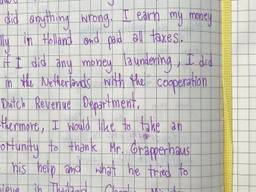 did anything wrong. I earn my money
in Holland and paid all taxes.
if I did any money laundering, I did
in the Netherlands with the cooperation
Dutch Revenue Department.
thermore, I would like to take an
ortunity to thank Mr. Grapperhaus
his help and what he tried to
in Thailand